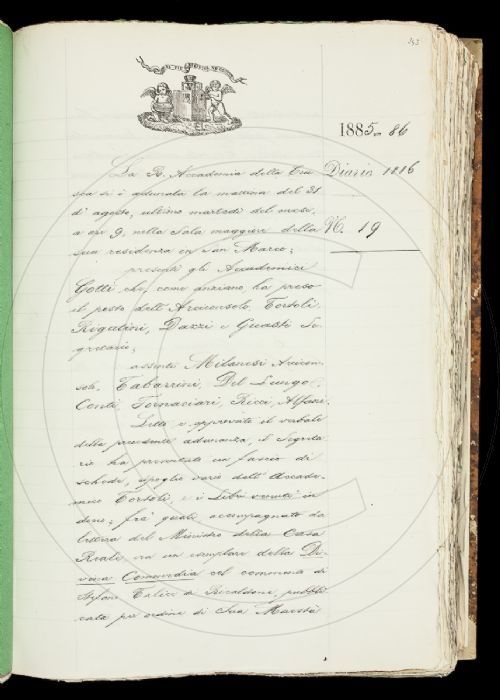 343
1885-86
Diario 1886
N. 19
La R. Accademia della Cru
sca si è adunata la mattina del 31
di agosto, ultimo martedì del mese,
a ore 9, nella sala maggiore della
sua residenza in San Marco;
presenti gli Accademici
Gotti che, come anziano ha preso
il posto dell'Arciconsolo, Tortoli
Rigutini, Dazzi e Guasti Se
gretario;
assenti Milanesi Arcicon
solo, Tabarrini, Del Lungo,
Conti, Fornaciari, Ricci, Alfani.
Letto e approvato il verbale
della precedente adunanza, il Segreta
rio ha presentato un fascio di
schede, spoglio vario dell'Accade-
mico Tortoli, e i libri venuti in
dono; fra' quali, accompagnato da
lettera del Ministro della Casa
Reale, era un esemplare della Di-
vina Commedia col commento di
Stefano Talice da Ricaldone, pubbli
cata per ordine di Sua Maestà